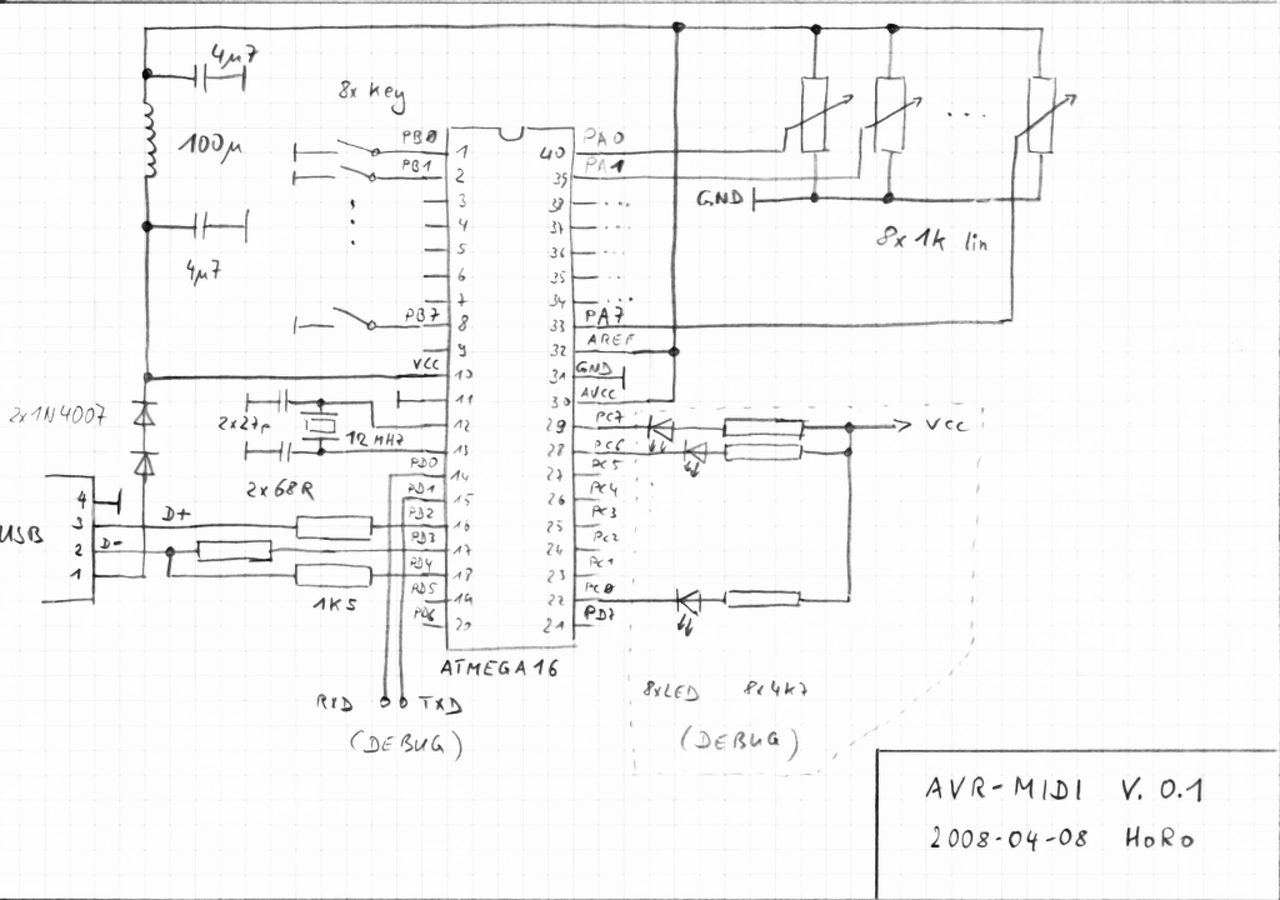 4µ7
8x key
100µ
4µ7
PB0
PB1
PB7
VCC
1
2
3
4
5
6
7
8
9
10
11
12
13
14
15
16
17
18
19
20
40
39
38
37
36
35
34
33
32
31
30
29
28
27
26
25
24
23
22
21
PA0
PA1
...
...
...
...
...
PA7
AREF
GND
AVCC
PC7
PC6
PC5
PC4
PC3
PC2
PC1
PC0
PD7
GND
...
8x 1k lin
VCC
2x1N4007
2x27p
12MHz
2x68R
PD0
PD1
PD2
PD3
PD4
PD5
PD6
USB
4
3
2
1
D+
D-
1K5
ATMEGA16
RXD
TXD
(DEBUG)
8xLED
8x4K7
(DEBUG)
AVR-MIDI V. 0.1
2008-04-08 HoRo